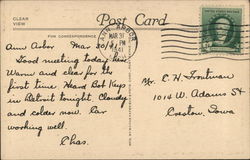 CLEAR
VIEW
Post Card
FOR CORRESPONDENCE
ANN ARBOR
MAR 31
PM
1941
Ann Arbor Mar 30/41
Good meeting today here
Warm and clear for the
first time. Heard Bob Keys
in Detroit tonight. Cloudy
and colder now. Car
working well.
Chas.
Mr. E. H. Troutman
1014 W. Adams St
Creston, Iowa